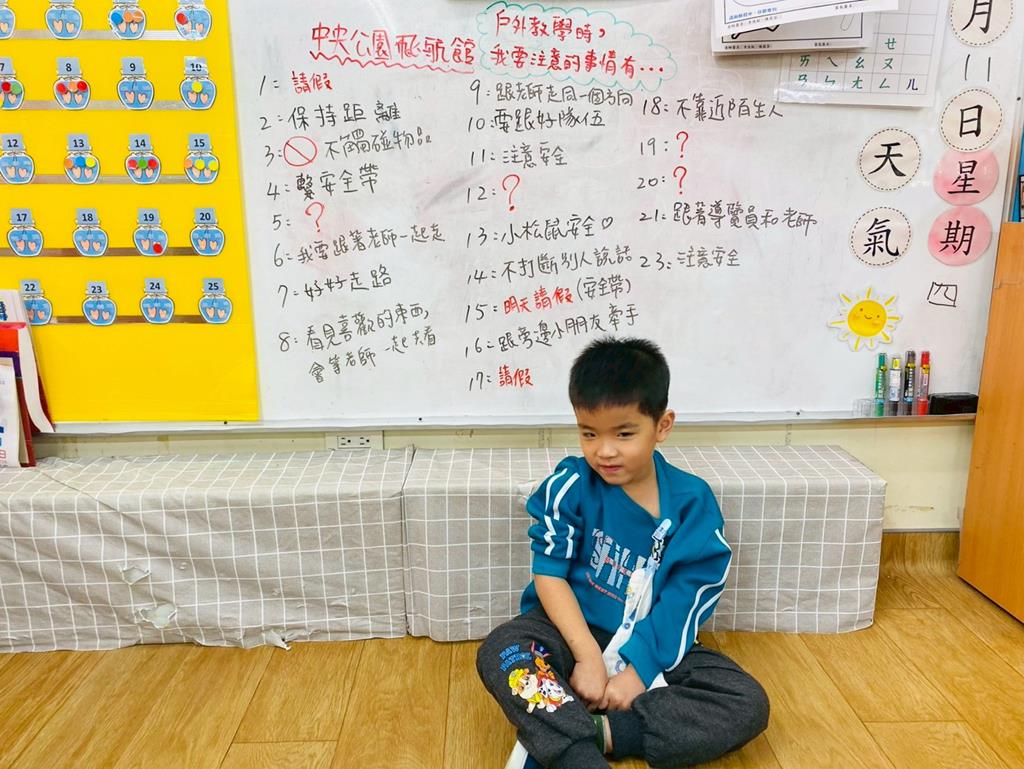 中央公園飛航館
戶外教學時，
我要注意的事情有...
1：請假
2：保持距離
3：不觸碰物品
4：繫安全帶
5：？
6：我要跟著老師一起走
7：好好走路
8：看見喜歡的東西，
會等老師一起去看
9：跟老師走同一個方向
10：要跟好隊伍
11：注意安全
12：？
13：小松鼠安全♡
14：不打斷別人說話
15：明天請假(安全帶)
16：跟旁邊小朋友牽手
17：請假
18：不靠近陌生人
19：？
20：？
21：跟著導覽員和老師
23：注意安全
月
日
星
期
四
天
氣
ㄝ
ㄞ ㄟ ㄠ ㄡ
ㄢ ㄣ ㄤ ㄥ ㄦ
7 8 9 10
12 13 14 15
17 18 19 20
22 23 24 25
PAW
PATROL